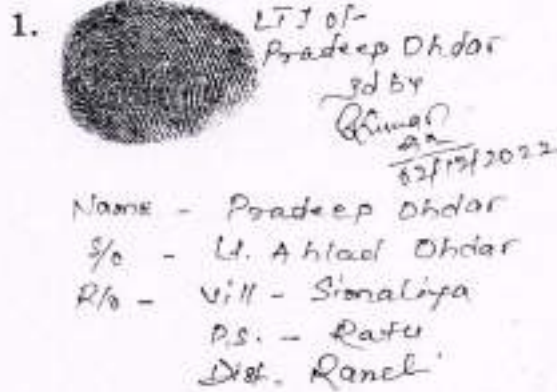 1.
LTI of-
Pradeep Ohdar
Id by
Kumar
02/12/2022
Name - Pradeep Ohdar
S/o - Lt. Ahlad Ohdar
R/o - Vill - Simaliya
P.S. - Ratu
Dist. Ranchi